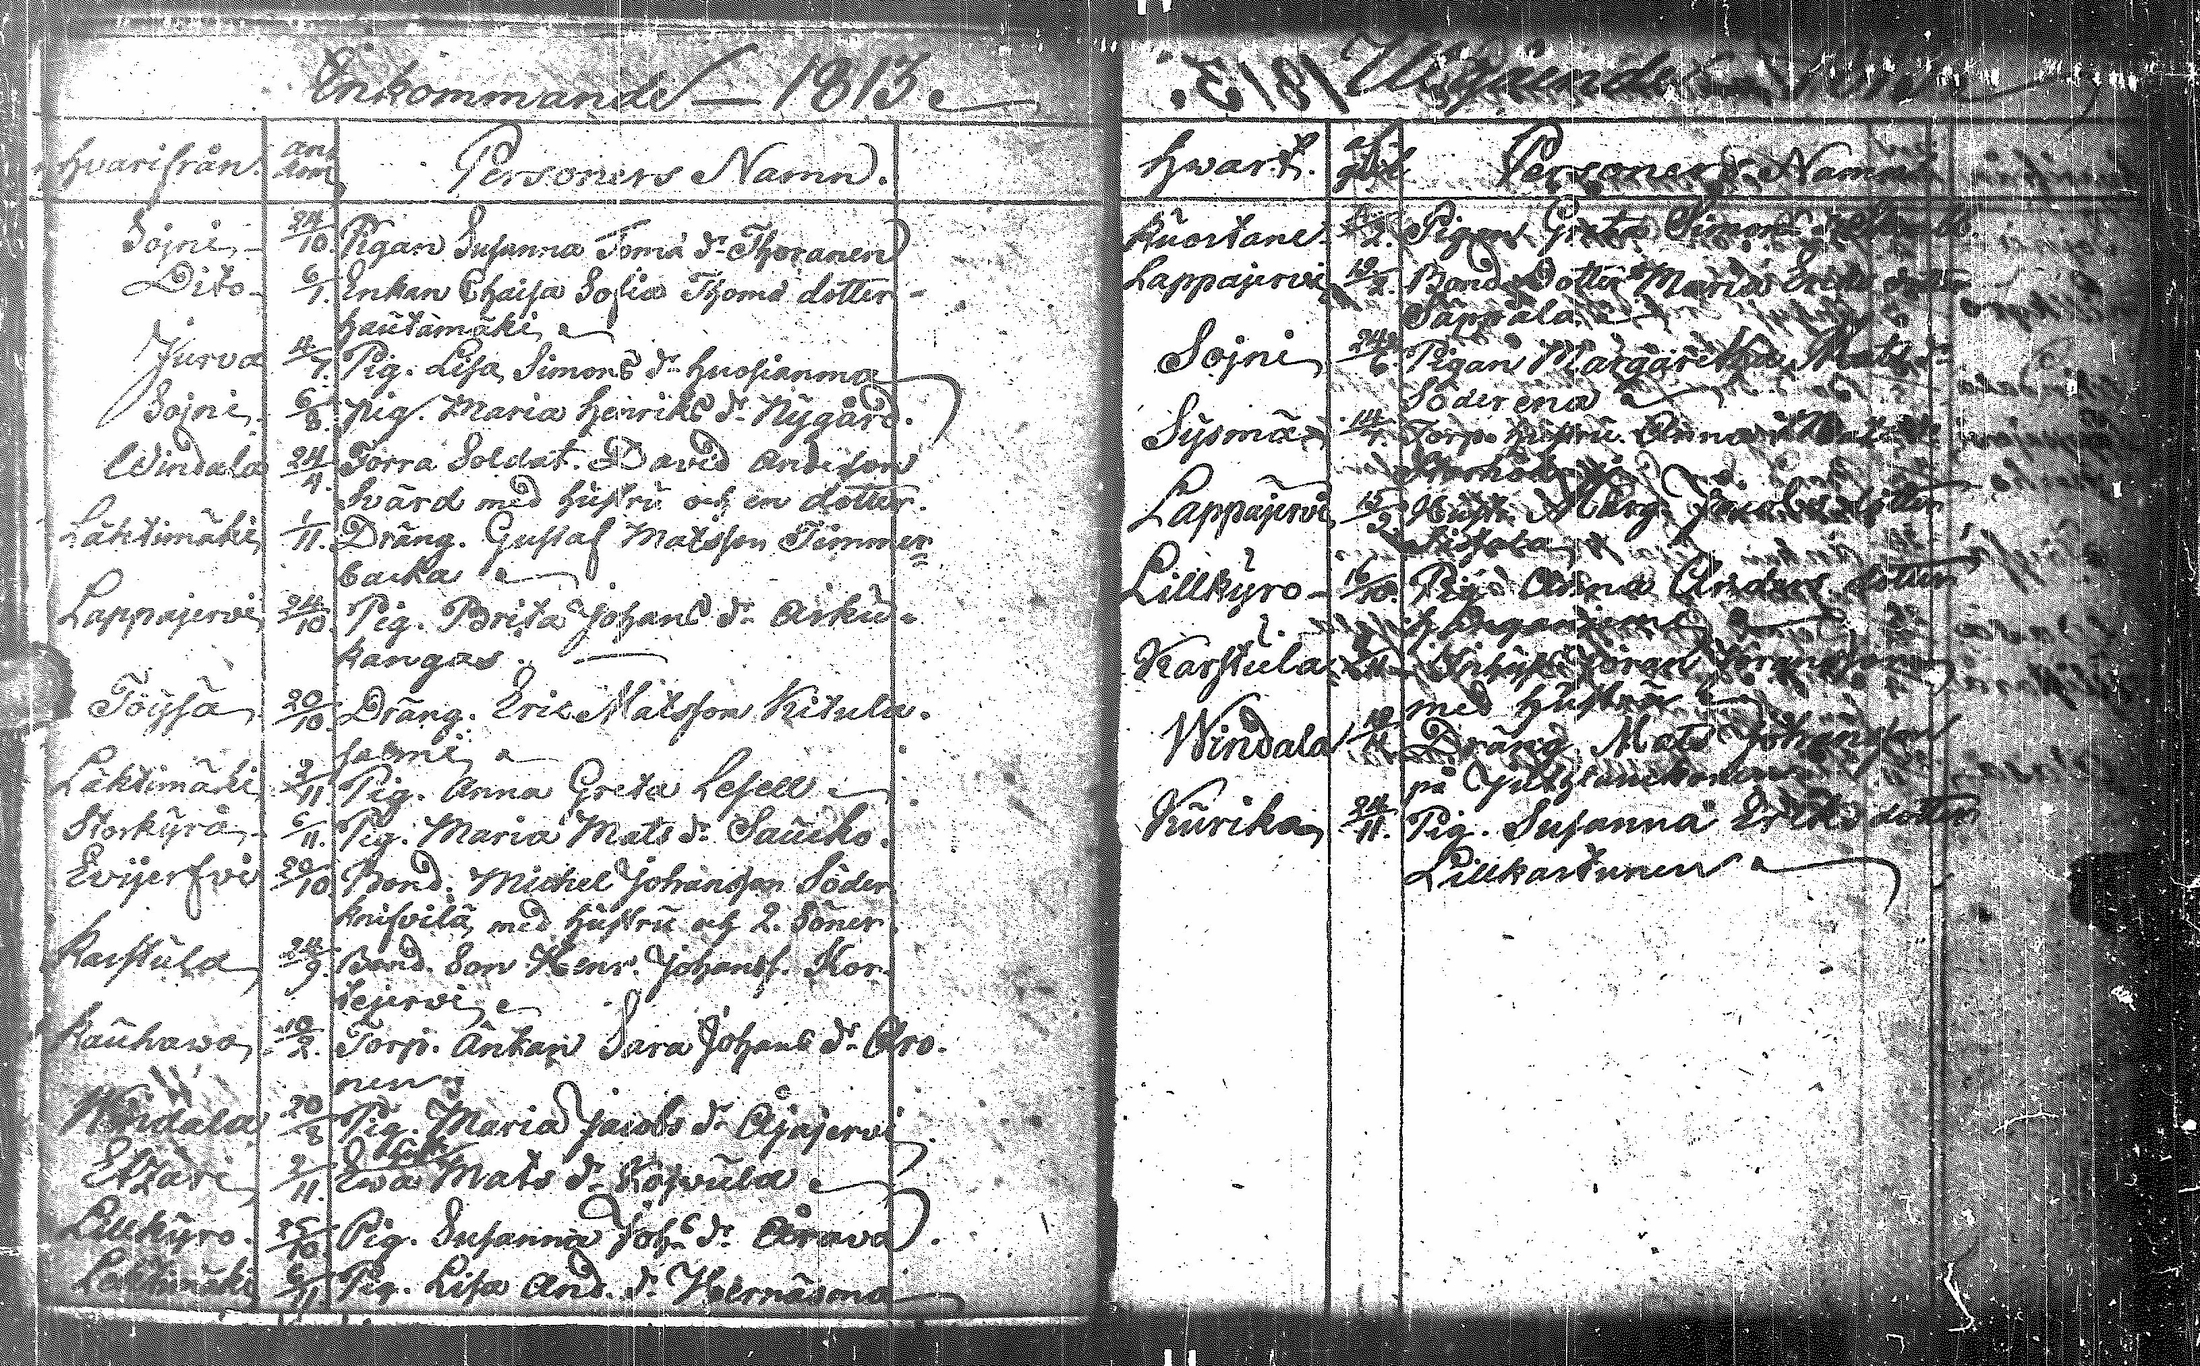 Inkommande — 1813.
hvarifrån. an dom Personers Namn.
Sojni 24/10. Pigan Susanna Toma dr Thoranen
Dito 6/7. Enkan Chaisa Sofia Thoma dotter
hautamäki
Jurva 4/7. Pig. Lisa Simons dr huosianma
Sojni. 6/8. Pig. Maria henriks dr Nygård.
Windala 24/9. Torra Soldat. David Andersson
Svärd med hustru och en dotter.
Läktimäki 1/11. Dräng. Gustaf Matsson Timmer
backa
Lappajervi 24/10. Pig. Brita Johans dr Asku
kangas
Töysä 20/10. Dräng. Eric Matsson Kitula.
salmi
Läktimäki 3/11. Pig. Anna Greta Lesell
Storkyrå 6/11. Pig. Maria Mats dr Saucko.
Evijerfvi 20/10 Bond. Michel Johansson Söder
knifvilä, med hustru och 2. Söner
Karstula 24/9. Bond. Son Henr. Johanss. Kor
tejervi
Kauhawa 10/2. Torp. Änkan Sara Johans dr Aro.
nen
Windala 20/8 Pig. Maria Jacobs dr Ajajervi
Etzäri 3/11. Ewa Mats dr Koivula
Lillkyro. 25/10. Pig. Susanna Joh. dr Arava
Lektimäki 6/11. Pig. Lisa And. dr Hernäsma
1813. Utgående
hwart. Personers Namn
Kuortane. Pigan Greta Simons
Lappajervi 19/2. Bond. Dotter Maria Eriks dotter
Säppälä
Sojni 24/6. Pigan Margaretha Mats dr
Söderena
Sysmä 14/7. Torp. hustru. Anna Mats dr
Lappajervi 15/9 Hust. Marg. Jacobs dotter
Lillkyro 16/10. Pig. Anna Anders dotter
Karstula Göran Göransson
med hustru
Windala Dräng Mats Johansson
på
Kurika 24/11. Pig. Susanna Eriks dotter
Lillkastunen